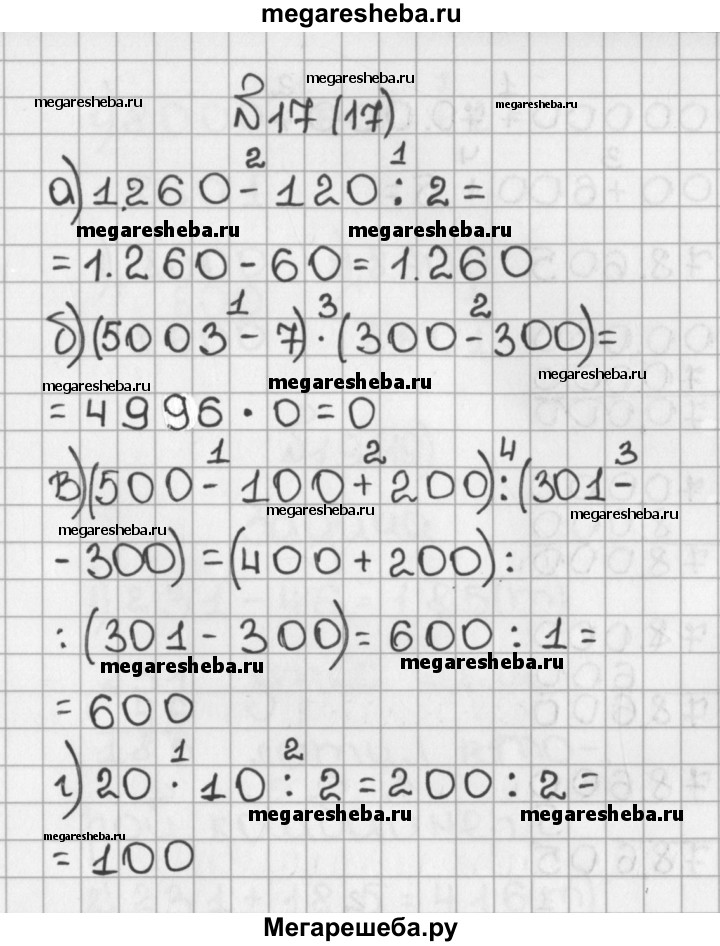 megaresheba.ru
megaresheba.ru
megaresheba.ru № 17 (17) megaresheba.ru
2 1
а) 1.260 - 120 : 2 =
megaresheba.ru megaresheba.ru
= 1.260 - 60 = 1.260
1 3 2
б) (5003 - 7) · (300 - 300) =
megaresheba.ru megaresheba.ru megaresheba.ru
= 4996 · 0 = 0
1 2 4 3
в) (500 - 100 + 200) : (301 -
megaresheba.ru megaresheba.ru megaresheba.ru
- 300) = (400 + 200) :
: (301 - 300) = 600 : 1 =
megaresheba.ru megaresheba.ru
= 600
1 2
г) 20 · 10 : 2 = 200 : 2 =
megaresheba.ru megaresheba.ru
megaresheba.ru
= 100
Мегарешеба.ру